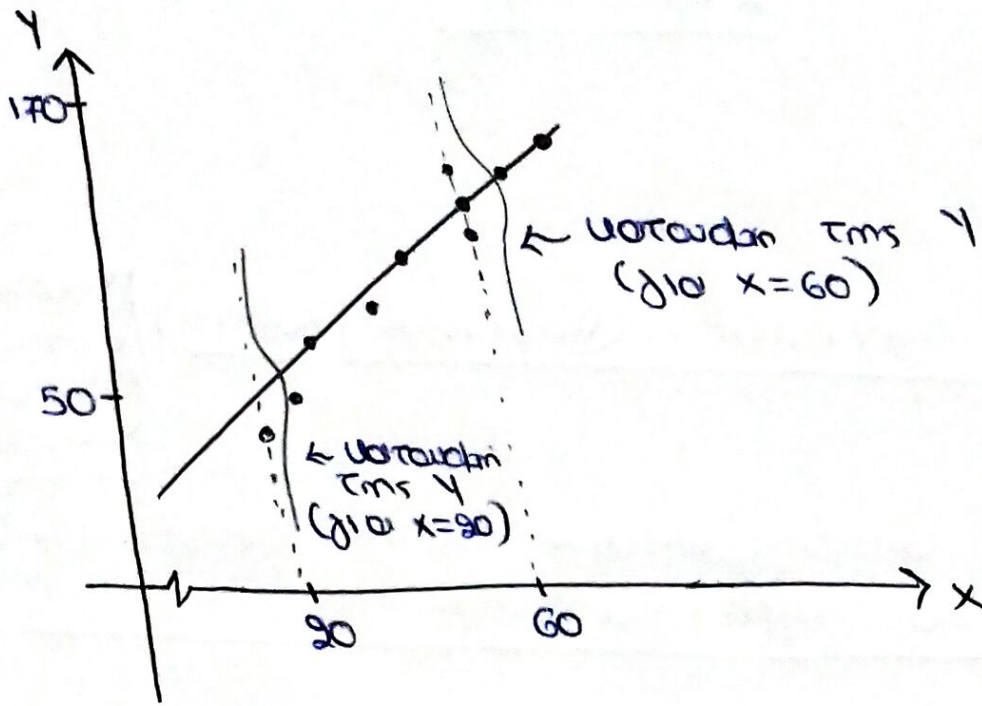 Y
170
κατανομή της Y
(για x=60)
50
← κατανομή
της Y
(για x=20)
20
60
x